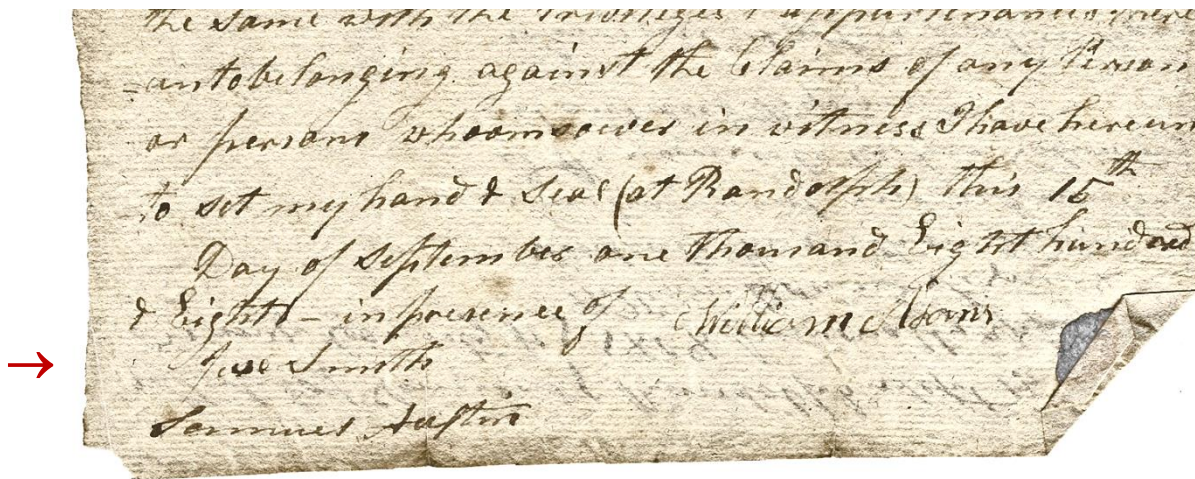 the same with the Priviledges & appurtenances there
-untobelonging against the Claims of any Person
or persons whoomsoever in witness I have hereun
to set my hand & seal (at Randolph) this 15th
Day of September one thousand Eight hundred
& Eight - in presence of William Adams
Jese Smith
Samuel Austin